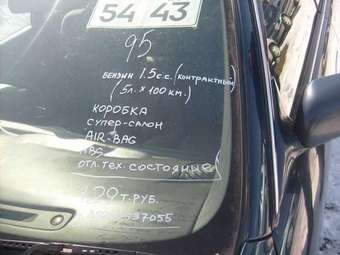 54 43
95
БЕНЗИН 1.5 с.с. (контрактный)
(5л. х 100 км.)
КОРОБКА
СУПЕР-САЛОН
AIR-BAG
ABS
ОТЛ. ТЕХ. СОСТОЯНИЕ
129 Т.РУБ.
537055